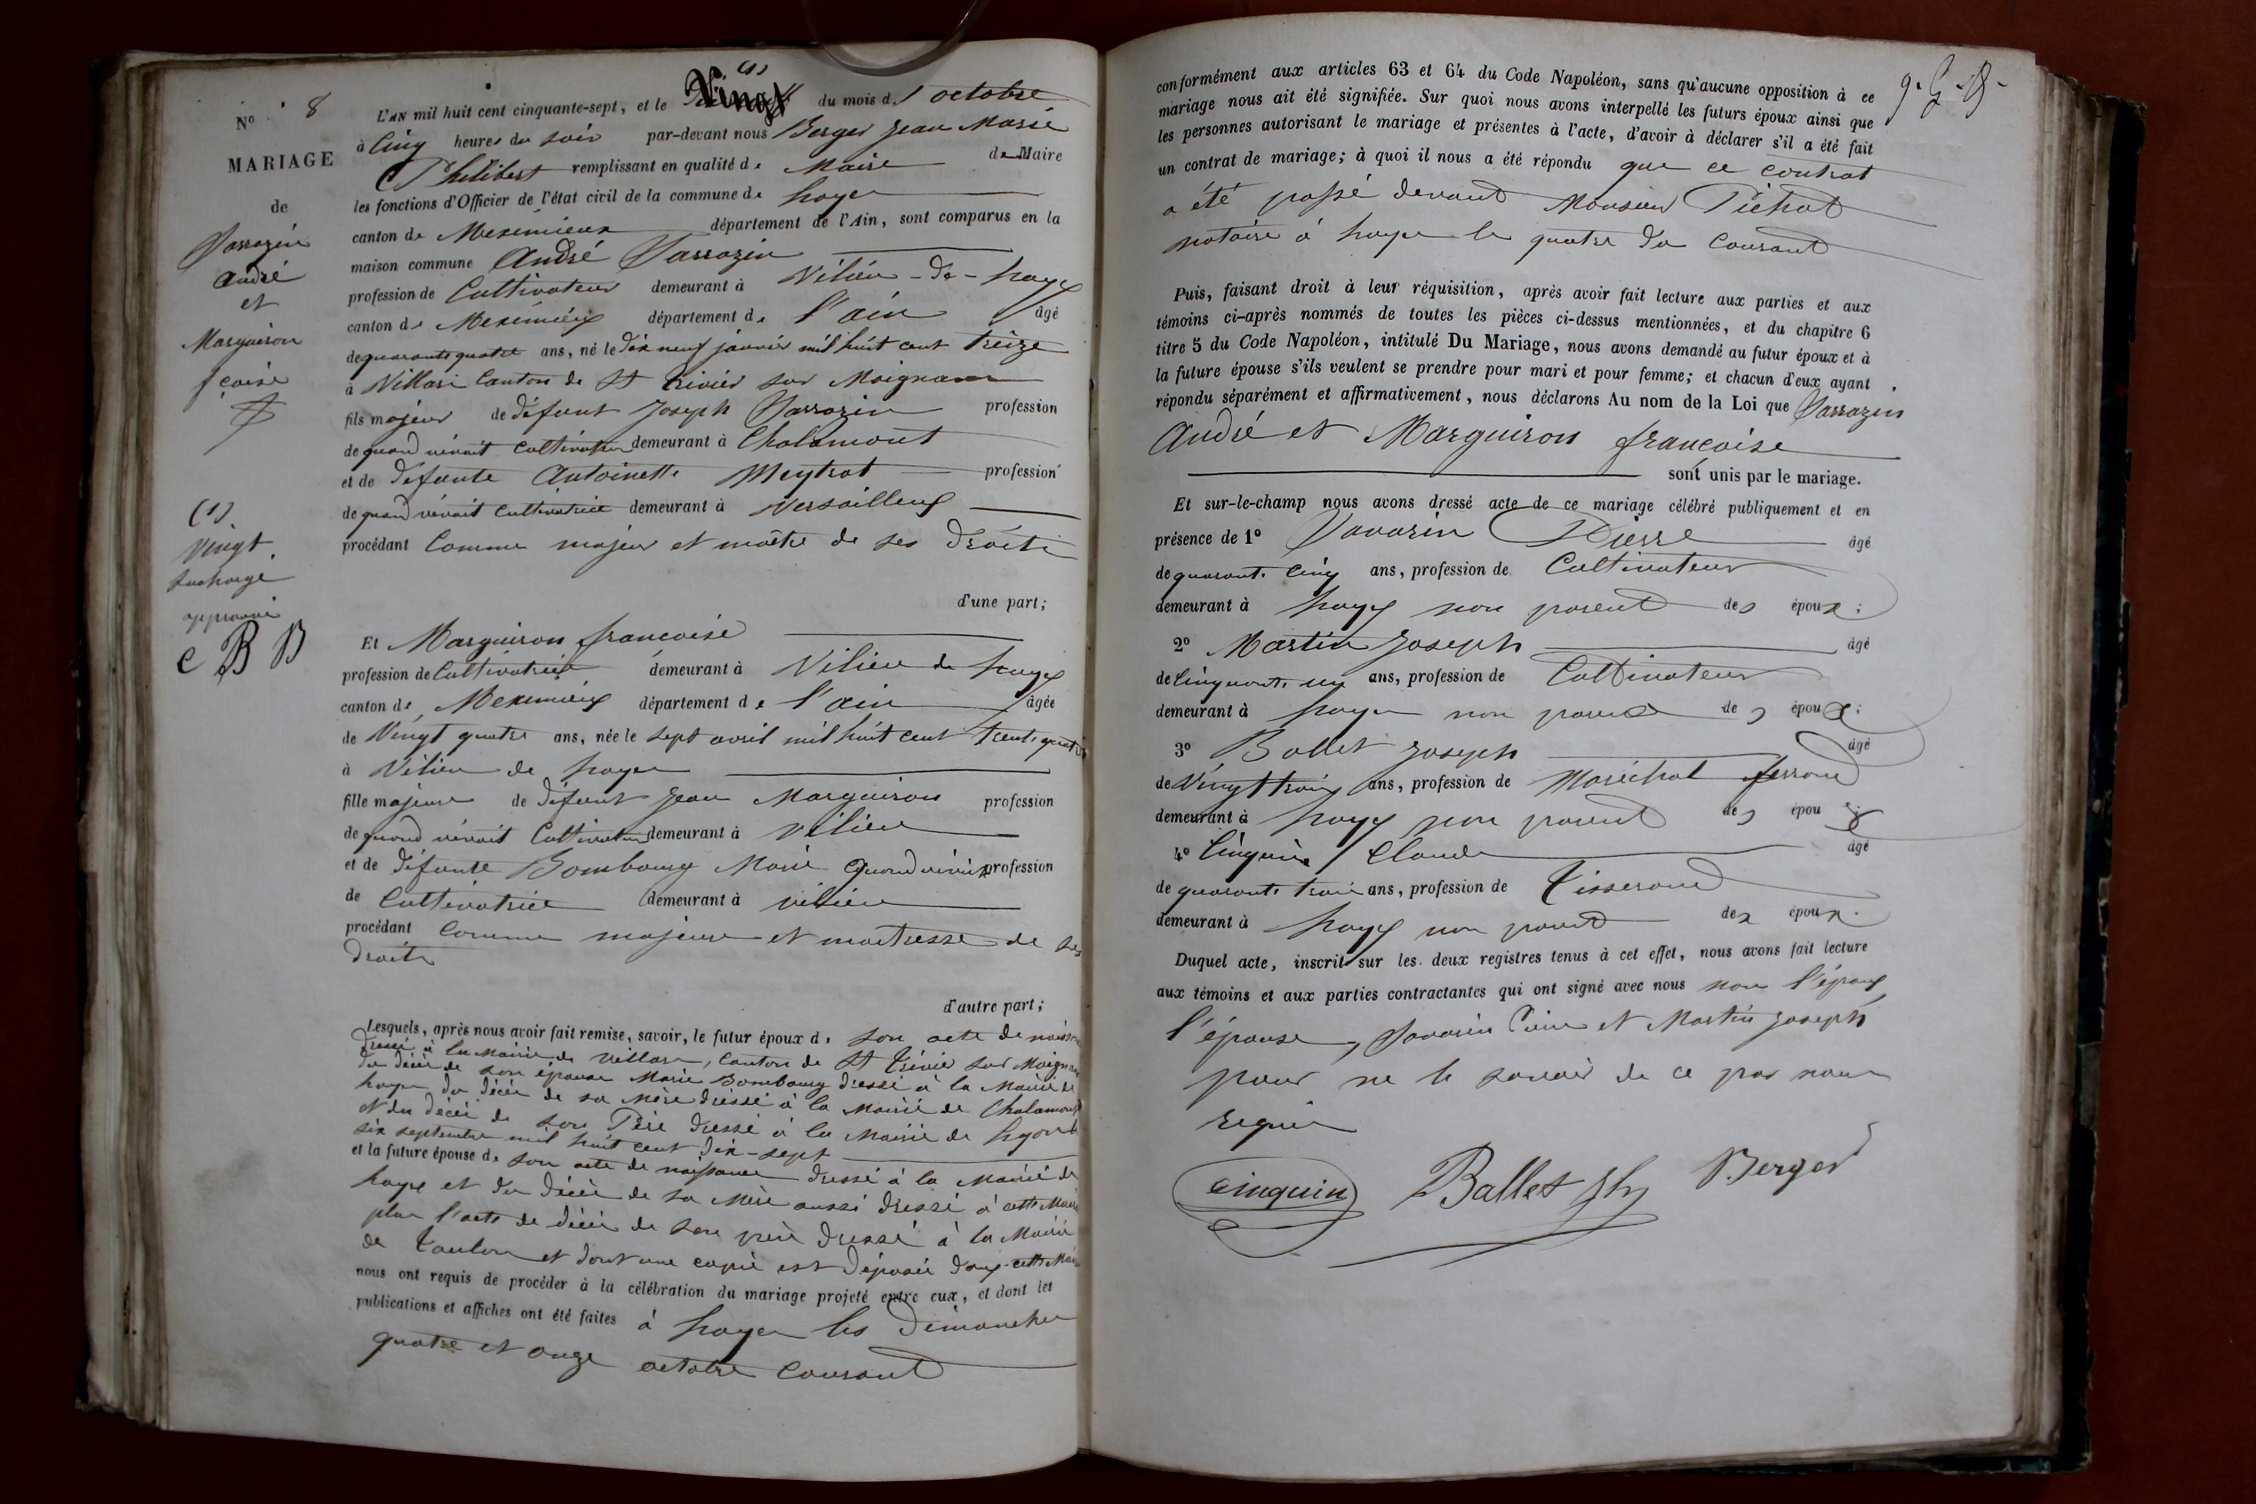 N° 8
MARIAGE
de
Sarrazin
André
et
Marguiron
fçoise
(1)
Vingt
surchargé
approuvé
B B
(1)
L'AN mil huit cent cinquante-sept, et le Vingt du mois d'octobre
à Cinq heures du soir par-devant nous Berger Jean Marie
Philibert remplissant en qualité de Maire de Maire
les fonctions d'Officier de l'état civil de la commune de Loyes
canton de Meximieux département de l'Ain, sont comparus en la
maison commune André Sarrazin
profession de Cultivateur demeurant à Vilieu-de-Loyes
canton de Meximieux département de l'ain âgé
de quarante quatre ans, né le dix neuf janvier mil huit cent treize
à Villars Canton de St Trivier sur Moignans
fils majeur de défunt Joseph Sarrazin profession
de quand vivait Cultivateur demeurant à Chalamont
et de défunte Antoinette Meytrat profession
de quand vivait Cultivatrice demeurant à Versailleux
procédant Comme majeur et maître de ses droits
d'une part;
Et Marguiron françoise
profession de Cultivatrice demeurant à Vilieu de Loyes
canton de Meximieux département de l'ain âgée
de Vingt quatre ans, née le sept avril mil huit cent trente quatre
à Vilieu de Loyes
fille majeure de défunt Jean Marguiron profession
de quand vivait Cultivateur demeurant à Vilieu
et de défunte Bombourg Marie quand vivait profession
de Cultivatrice demeurant à vilieu
procédant Comme majeure et maitresse de ses
droits
d'autre part;
Lesquels, après nous avoir fait remise, savoir, le futur époux de son acte de naissance
dressé à la Mairie de Villars, Canton de St Trivier sur Moignans
du décès de son épouse Marie Bombourg dressé à la Mairie de
Loyes du décès de sa Mère dressé à la Mairie de Chalamont
et du décès de son Père dressé à la Mairie de Lyon le
six septembre mil huit cent dix-sept
et la future épouse de son acte de naissance dressé à la Mairie de
Loyes et du décès de sa Mère aussi dressé à cette Mairie
plus l'acte de décès de son père dressé à la Mairie
de Toulon et dont une copie est déposée dans cette Mairie
nous ont requis de procéder à la célébration du mariage projeté entre eux, et dont les
publications et affiches ont été faites à Loyes les Dimanches
quatre et onze octobre Courant
conformément aux articles 63 et 64 du Code Napoléon, sans qu'aucune opposition à ce
mariage nous ait été signifiée. Sur quoi nous avons interpellé les futurs époux ainsi que
les personnes autorisant le mariage et présentes à l'acte, d'avoir à déclarer s'il a été fait
un contrat de mariage; à quoi il nous a été répondu que ce contrat
a été passé devant Monsieur Pichat
notaire à Loyes le quatre du Courant
Puis, faisant droit à leur réquisition, après avoir fait lecture aux parties et aux
témoins ci-après nommés de toutes les pièces ci-dessus mentionnées, et du chapitre 6
titre 5 du Code Napoléon, intitulé Du Mariage, nous avons demandé au futur époux et à
la future épouse s'ils veulent se prendre pour mari et pour femme; et chacun d'eux ayant
répondu séparément et affirmativement, nous déclarons Au nom de la Loi que Sarrazin
André et Marguiron françoise
sont unis par le mariage.
Et sur-le-champ nous avons dressé acte de ce mariage célébré publiquement et en
présence de 1° Savarin Pierre âgé
de quarante cinq ans, profession de Cultivateur
demeurant à Loyes non parent des époux;
2° Martin Joseph âgé
de Cinquante un ans, profession de Cultivateur
demeurant à Loyes non parent des époux;
3° Ballet Joseph âgé
de Vingt trois ans, profession de Maréchal ferrand
demeurant à Loyes non parent des époux;
4° Cinquin Claude âgé
de quarante trois ans, profession de Tisserand
demeurant à Loyes non parent des époux.
Duquel acte, inscrit sur les deux registres tenus à cet effet, nous avons fait lecture
aux témoins et aux parties contractantes qui ont signé avec nous non l'époux
l'épouse, Savarin Pierre et Martin Joseph
pour ne le savoir de ce par nous
requis
Cinquin Ballet Jh Berger